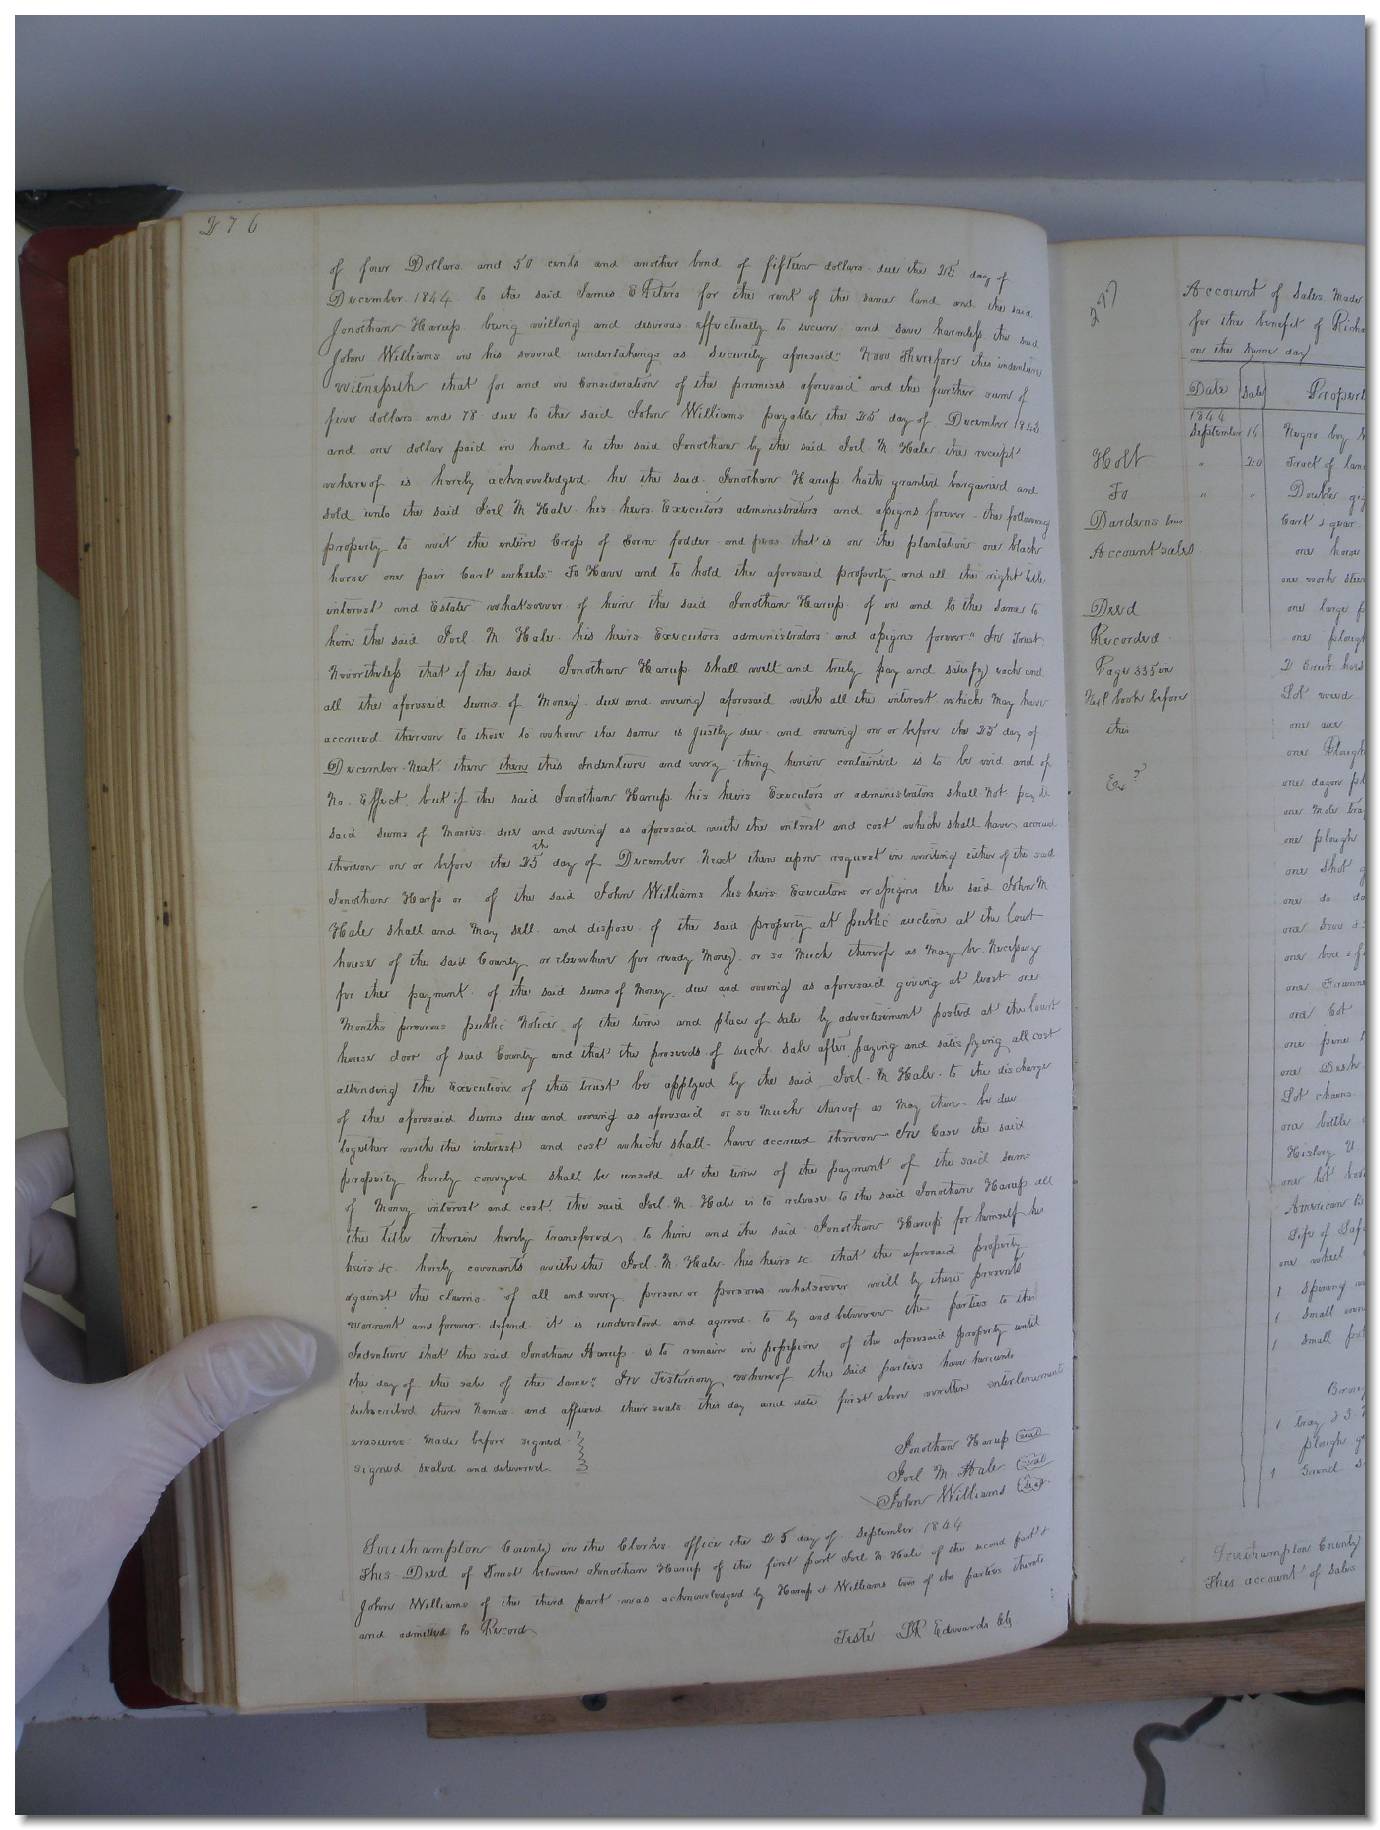 276
of four Dollars and 50 cents and another bond of fifteen dollars due the 25 day of
December 1844 to the said James E for the rent of the same land and the said
Jonothan Harup being willing and desirous effectually to secure and save harmless the said
John Williams in his several undertakings as Security aforesaid" Now Therefore this indenture
witnesseth that for and in Consideration of the premises aforesaid and the further sum of
five dollars and 78 due to the said John Williams payable the 25 day of December
and one dollar paid in hand to the said Jonothan by the said Joel M Hale the receipt
whereof is hereby acknowledged he the said Jonothan Harup hath granted bargained and
sold unto the said Joel M Hale his heirs Executors administrators and assigns forever the following
property to wit the entire Crop of Corn fodder and peas that is on the plantation one black
horse one pair Cart wheels" To Have and to hold the aforesaid property and all the right title
interest and Estate whatsoever of him the said Jonothan Harup of in and to the same to
him the said Joel M Hale his heirs Executors administrators and assigns forever" In Trust
Neverthelefs that if the said Jonothan Harup shall well and truly pay and satisfy each and
all the aforesaid sums of Money due and owing aforesaid with all the interest which May have
accrued thereon to those to whom the same is justly due and owing on or before the 25 day of
December Next then then this Indenture and every thing herein contained is to be void and of
No Effect but if the said Jonothan Harup his heirs Executors or administrators shall not pay the
said sums of Monies due and owing as aforesaid with the interest and cost which shall have accrued
thereon on or before the 25th day of December Next then upon request in writing either of the said
Jonothan Harup or of the said John Williams his heirs Executors or assigns the said John M
Hale shall and May sell and dispose of the said property at public auction at the Court
house of the said County or elsewhere for ready Money or so Much thereof as May be Necessary
for the payment of the said sums of Money due and owing as aforesaid giving at least one
Months previous public Notice of the time and place of sale by advertisement posted at the Court
house door of said County and that the proceeds of such sale after paying and satisfying all cost
attending the Execution of this trust be applyed by the said Joel M Hale to the discharge
of the aforesaid sums due and owing as aforesaid or so Much thereof as May then be due
together with the interest and cost which shall have accrued thereon In Case the said
property hereby conveyed shall be unsold at the time of the payment of the said sum
of Money interest and cost the said Joel M Hale is to release to the said Jonothan Harup all
the title therein hereby transfered to him and the said Jonothan Harup for himself his
heirs &c hereby covenants with the Joel M Hale his heirs &c that the aforesaid property
against the claims of all and every person or persons whatsoever will by these presents
warrant and forever defend it is understood and agreed to by and between the parties to this
Indenture that the said Jonothan Harup is to remain in possession of the aforesaid property until
the day of the sale of the same" In Testimony whereof the said parties have hereunto
subscribed their Names and affixed their seals this day and date first above written enterlinements
erasures made before signed
signed sealed and delivered
Jonothan Harup seal
Joel M Hale seal
John Williams seal
Southampton County in the Clerks office the 25 day of September 1844
This Deed of Trust between Jonothan Harup of the first part Joel M Hale of the second part &
John Williams of the third part was acknowledged by Harup & Williams two of the parties thereto
and admitted to Record
Teste LR Edwards Clk
277
Account of Sales Made
for the benefit of Richa
on the same day
Date Sales Propert
1844
September 14 Negro boy
Holt " 20 Tract of lan
To " " Double gig
Dardens
Cart & gear
Account sales one horse
one work stee
Deed one large
Recorded one plough
Page 335 in
Next book before Lot
this one axe
one Plough
Ex?
one plough
one shot g
one do
one pine
one Desk
Lot chairs
one bottle
History U
one lot
American
Life of Laf
one wheel
1 Spinning
1 Small
1 Small
Southampton County
This account of sales